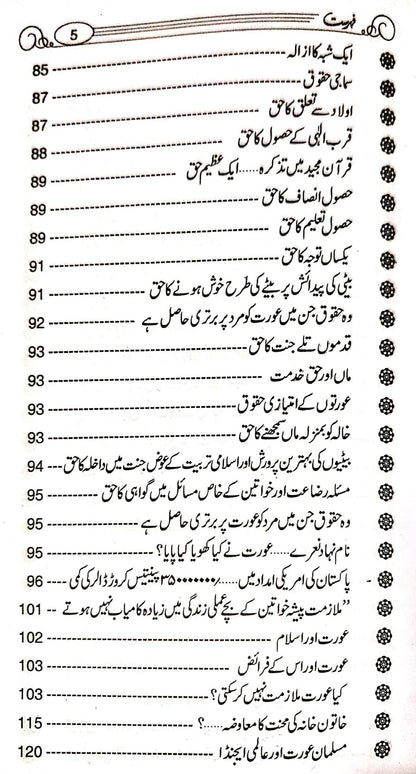 فہرست
5
ایک شبہ کا ازالہ ---------- 85
سماجی حقوق ---------- 87
اولاد سے تعلق کا حق ---------- 87
قرب الٰہی کے حصول کا حق ---------- 88
قرآن مجید میں تذکرہ.....ایک عظیم حق ---------- 89
حصول انصاف کا حق ---------- 89
حصول تعلیم کا حق ---------- 89
یکساں توجہ کا حق ---------- 91
بیٹی کی پیدائش پر بیٹے کی طرح خوش ہونے کا حق ---------- 91
وہ حقوق جن میں عورت کو مرد پر برتری حاصل ہے ---------- 92
قدموں تلے جنت کا حق ---------- 93
ماں اور حق خدمت ---------- 93
عورتوں کے امتیازی حقوق ---------- 93
خالہ کو بمنزلہ ماں سمجھنے کا حق ---------- 93
بیٹیوں کی بہترین پرورش اور اسلامی تربیت کے عوض جنت میں داخلہ کا حق --- 94
مسئلہ رضاعت اور خواتین کے خاص مسائل میں گواہی کا حق ---------- 95
وہ حقوق جن میں مرد کو عورت پر برتری حاصل ہے ---------- 95
نام نہاد نعرے.....عورت نے کیا کھویا کیا پایا؟ ---------- 95
پاکستان کی امریکی امداد میں...../۳۵۰۰۰۰۰۰۰ پینتیس کروڑ ڈالر کی کمی ---- 96
”ملازمت پیشہ خواتین کے بچے عملی زندگی میں زیادہ کامیاب نہیں ہوتے -- 101
عورت اور اسلام ---------- 102
عورت اور اس کے فرائض ---------- 103
کیا عورت ملازمت نہیں کر سکتی؟ ---------- 103
خاتون خانہ کی محنت کا معاوضہ.....؟ ---------- 115
مسلمان عورت اور عالمی ایجنڈا ---------- 120